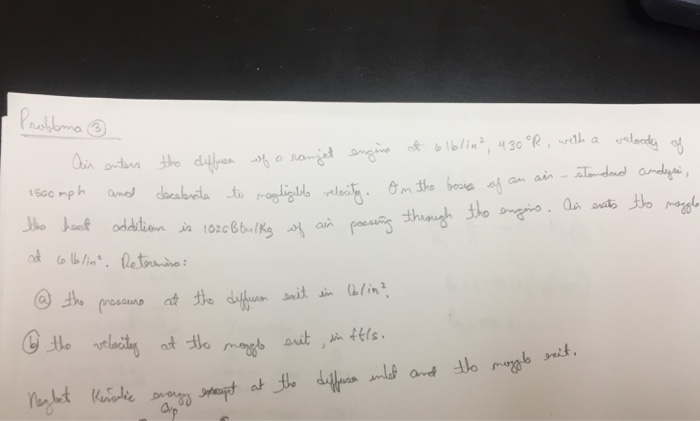 Problema ③
Air enters the diffuser of a ramjet engine at 6 lb/in², 430 °R, with a velocity of
1500 mph and decelerate to negligible velocity. On the basis of an air-standard analysis,
the heat addition is 1020 Btu/Kg of air passing through the engine. Air exits the nozzle
at 6 lb/in². Determine:
ⓐ the pressure at the diffuser exit in lb/in².
ⓑ the velocity at the nozzle exit, in ft/s.
Neglect Kinetic energy except at the diffuser inlet and the nozzle exit.